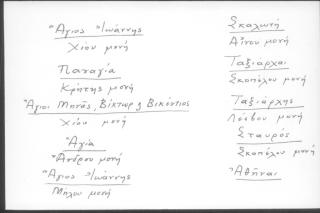 Ἅγιος Ἰωάννης
Χίου μονή
Παναγία
Κρήτης μονή
Ἅγιοι Μηνᾶς, Βίκτωρ & Βικέντιος
Χίου μονή
Ἁγία
Ἄνδρου μονή
Ἅγιος Ἰωάννης
Μήλου μονή
Σκαλωτή
Αἴνου μονή
Ταξιάρχαι
Σκοπέλου μονή
Ταξιάρχης
Λέσβου μονή
Σταυρός
Σκοπέλου μονή
Ἀθῆναι